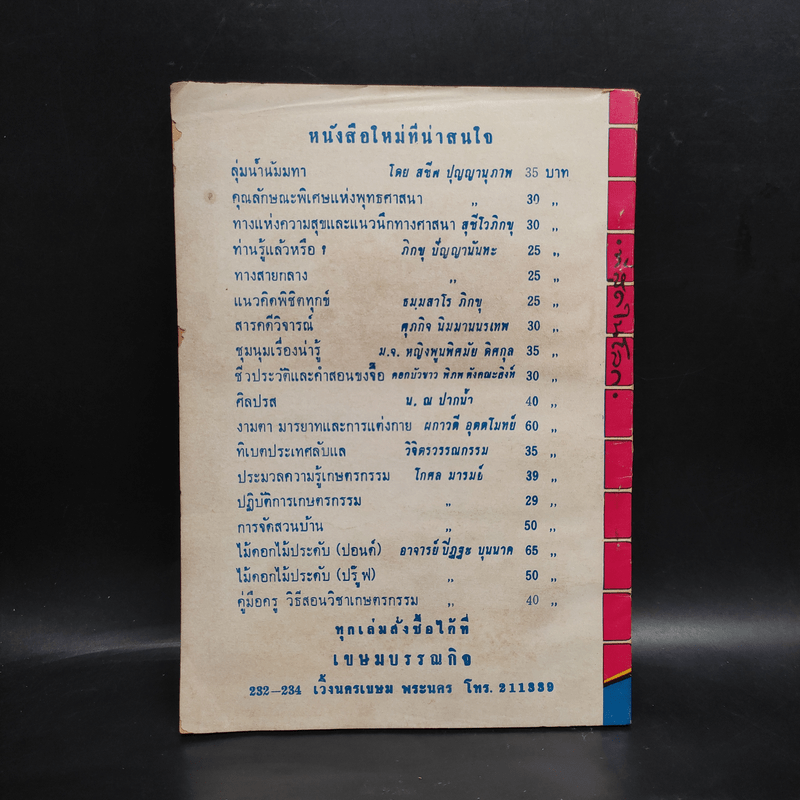 หนังสือใหม่ที่น่าสนใจ
ลุ่มน้ำนัมมทา โดย สุชีพ ปุญญานุภาพ 35 บาท
คุณลักษณะพิเศษแห่งพุทธศาสนา ,, 30 ,,
ทางแห่งความสุขและแนวนึกทางศาสนา สุชีโวภิกขุ 30 ,,
ท่านรู้แล้วหรือ ? ภิกขุ ปัญญานันทะ 25 ,,
ทางสายกลาง ,, 25 ,,
แนวคิดพิชิตทุกข์ ธมฺมสาโร ภิกขุ 25 ,,
สารคดีวิจารณ์ ศุภกิจ นิมมานนรเทพ 30 ,,
ชุมนุมเรื่องน่ารู้ ม.จ. หญิงพูนพิศมัย ดิศกุล 35 ,,
ชีวประวัติและคำสอนขงจื๊อ ดอกบัวขาว พิภพ ตังคณะสิงห์ 30 ,,
ศิลปรส น. ณ ปากน้ำ 40 ,,
งามตา มารยาทและการแต่งกาย ผกาวดี อุตตโมทย์ 60 ,,
ทิเบตประเทศลับแล วิจิตรวรรณกรรม 35 ,,
ประมวลความรู้เกษตรกรรม โกศล มารมย์ 39 ,,
ปฏิบัติการเกษตรกรรม ,, 29 ,,
การจัดสวนบ้าน ,, 50 ,,
ไม้ดอกไม้ประดับ (ปอนด์) อาจารย์ ปิฏฐะ บุนนาค 65 ,,
ไม้ดอกไม้ประดับ (ปรู๊ฟ) ,, 50 ,,
คู่มือครู วิธีสอนวิชาเกษตรกรรม ,, 40 ,,
ทุกเล่มสั่งซื้อได้ที่
เขษมบรรณกิจ
232—234 เวิ้งนครเขษม พระนคร โทร. 211339